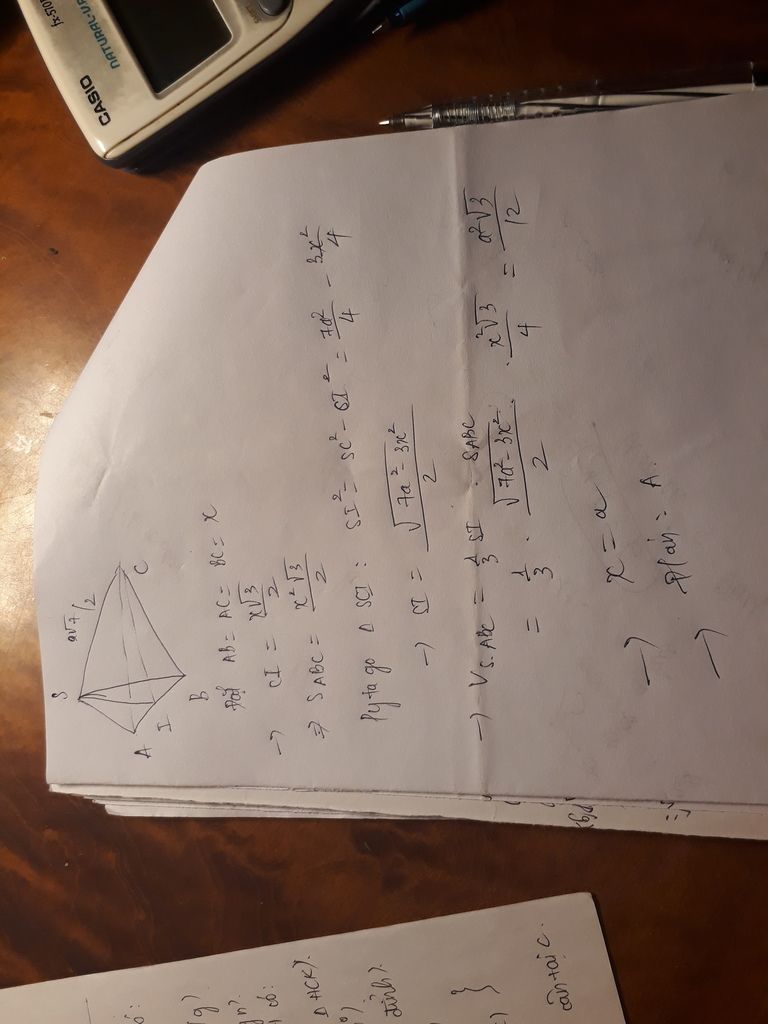 CASIO
NATURAL-V
fx-570
S
a√7/2
A
I
B
C
Đặt AB = AC = BC = x
→ CI = x√3/2
⇒ SABC = x²√3/2
Pytago Δ SCI : SI² = SC² - CI² = 7a²/4 - 3x²/4
→ SI = √7a² - 3x²/2
→ VS.ABC = 1/3 SI . SABC
= 1/3 . √7a² - 3x²/2 . x²√3/4 = a²√3/12
→ x = a
→ Đ/án: A.
Δ HCK).
cân tại C.